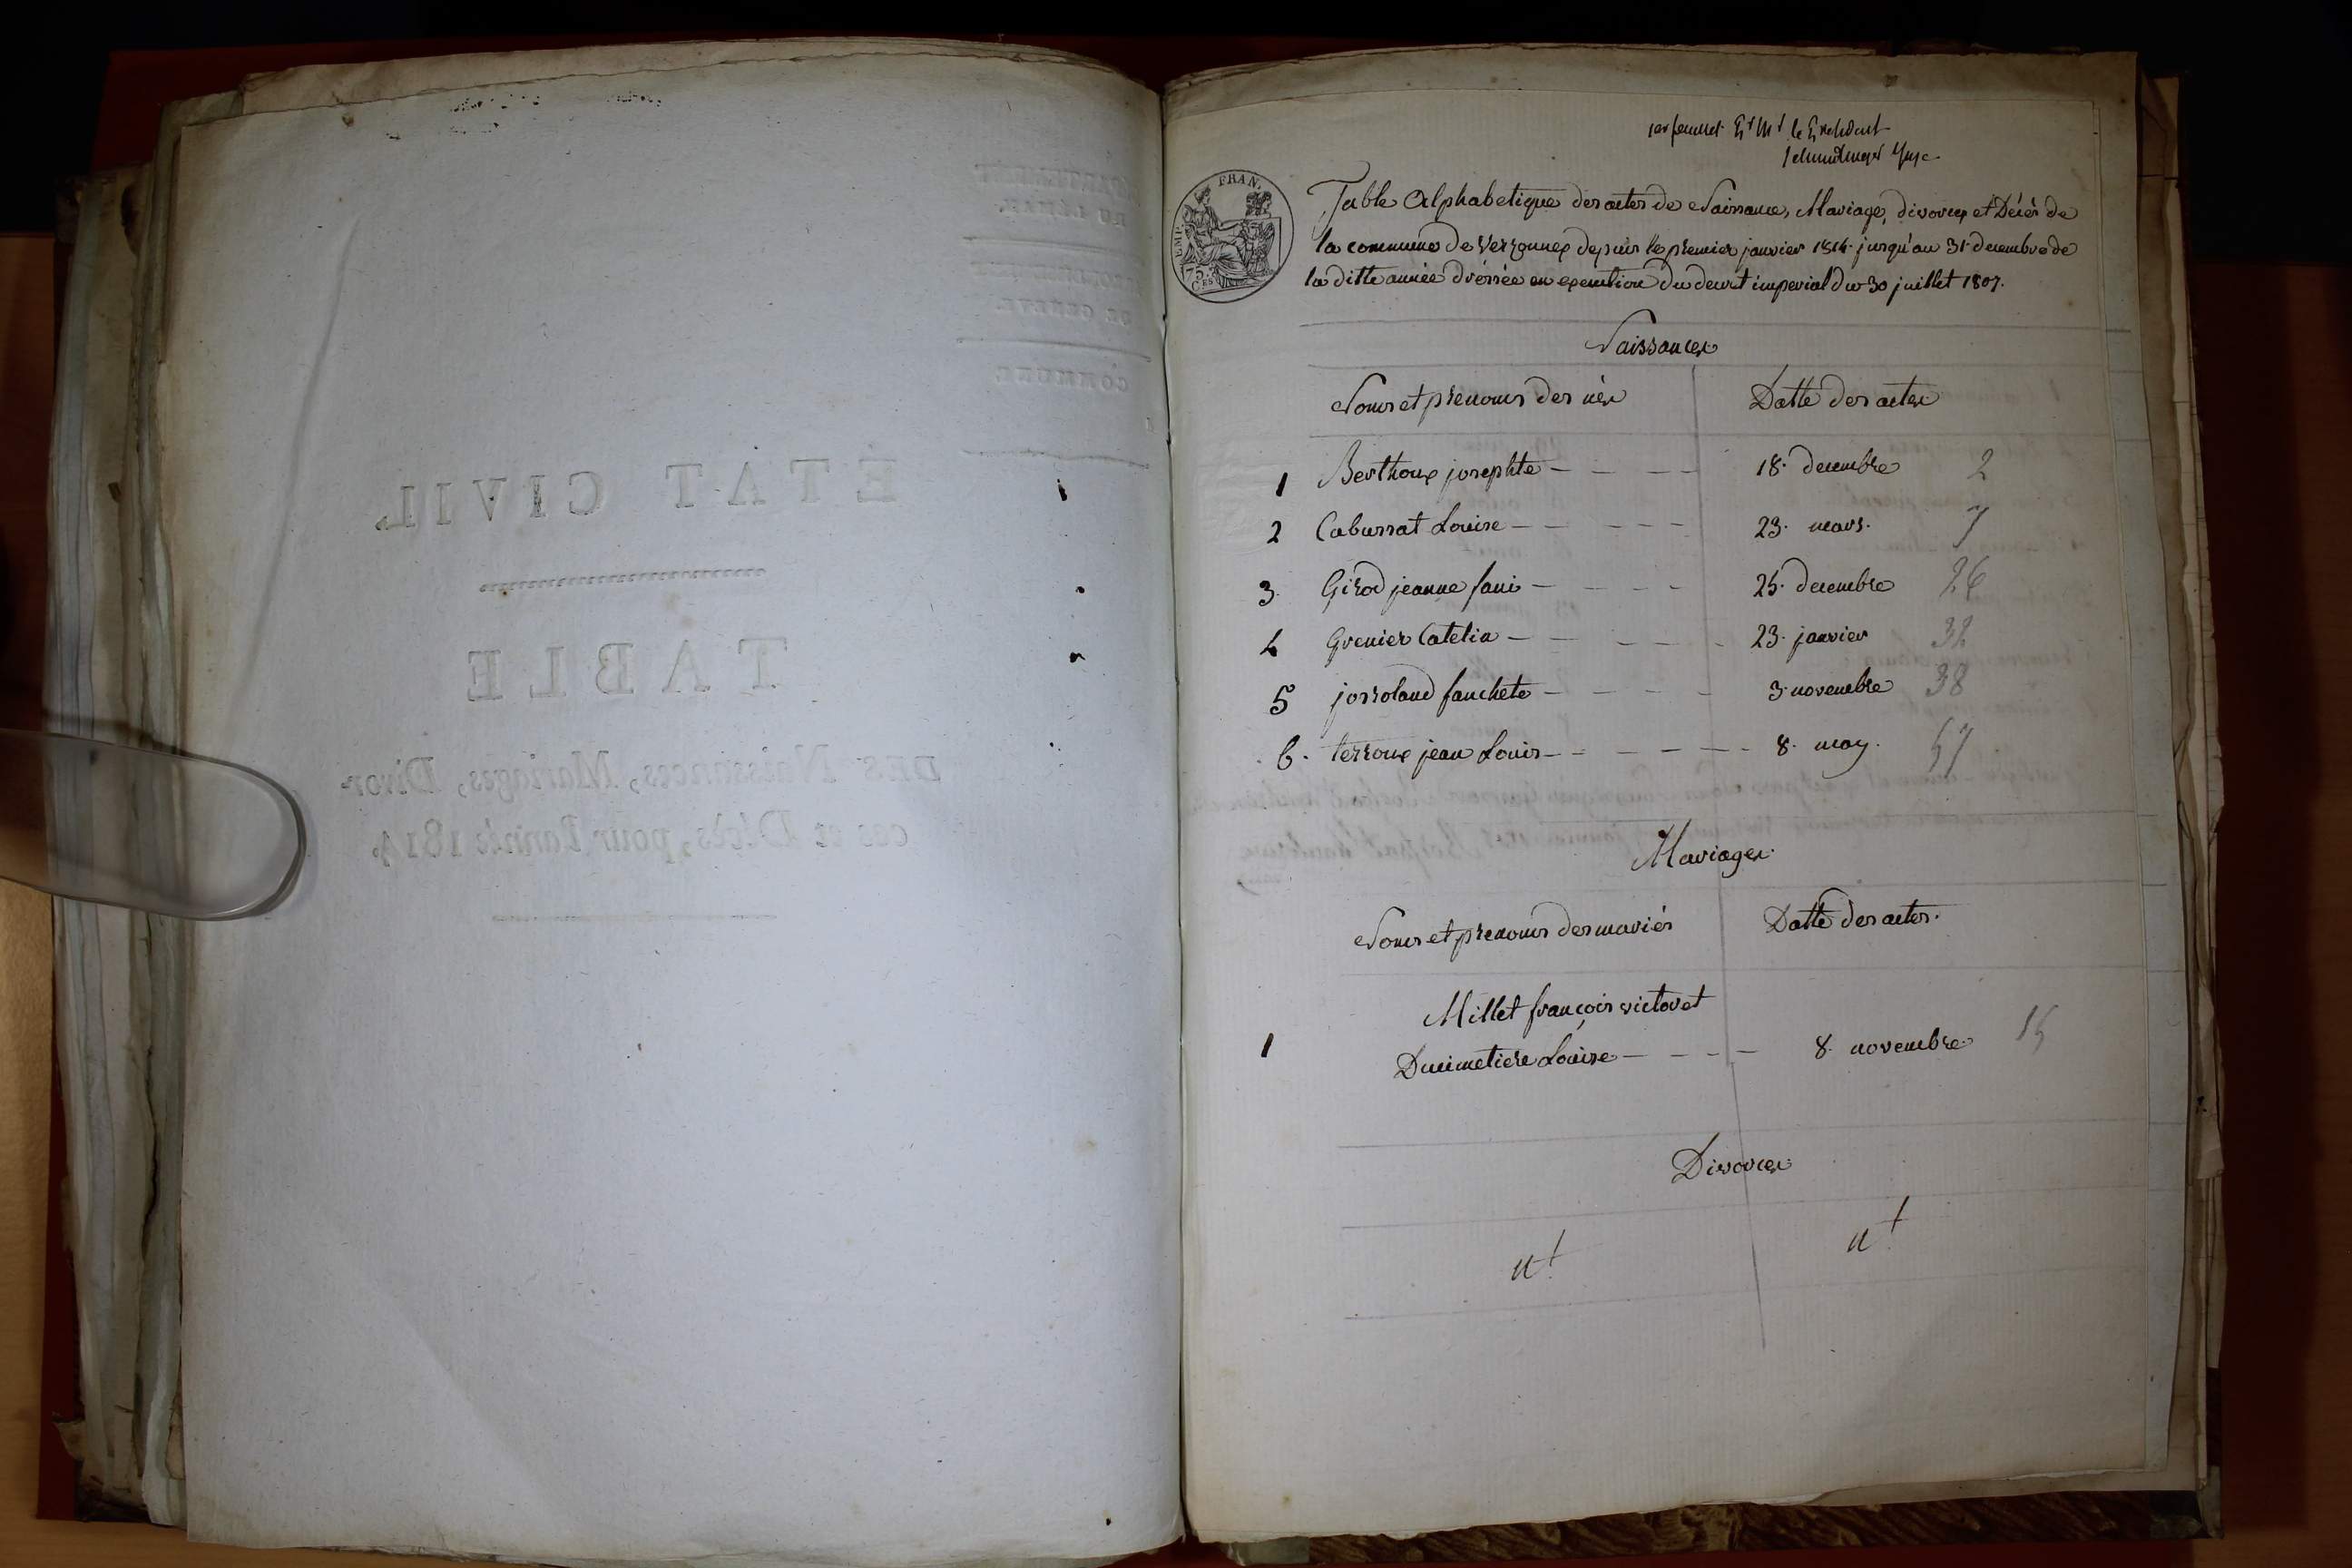 DU LÉMAN.
DE GENÈVE.
COMMUNE
ÉTAT CIVIL.
TABLE
DES Naissances, Mariages, Divor-
ces et Décès, pour l'année 1814.
1er feuillet
FRAN.
EMP.
75.
CES
Table Alphabetique des actes de Naissance, Mariage, divorces et Décès de
la commune de Versonnex depuis le premier janvier 1814. jusqu'au 31. decembre de
la ditte année dréssée en execution du decret imperial du 30 juillet 1807.
Naissances
Noms et prenoms des nés
Datte des actes
1 Berthoux josephte 18. decembre 2
2 Caburrat Louise 23. mars. 7
3. Girod jeanne fani 25. decembre 26
4 Grenier Catelin 23. janvier 32
5 josroland fanchete 3. novembre 38
6. terroux jean Louis 8. may. 57
Mariages.
Noms et prenoms des mariés
Datte des actes.
Millet françois victor et
1 Ducimetiere Louise 8. novembre 15
Divorces
nt
nt